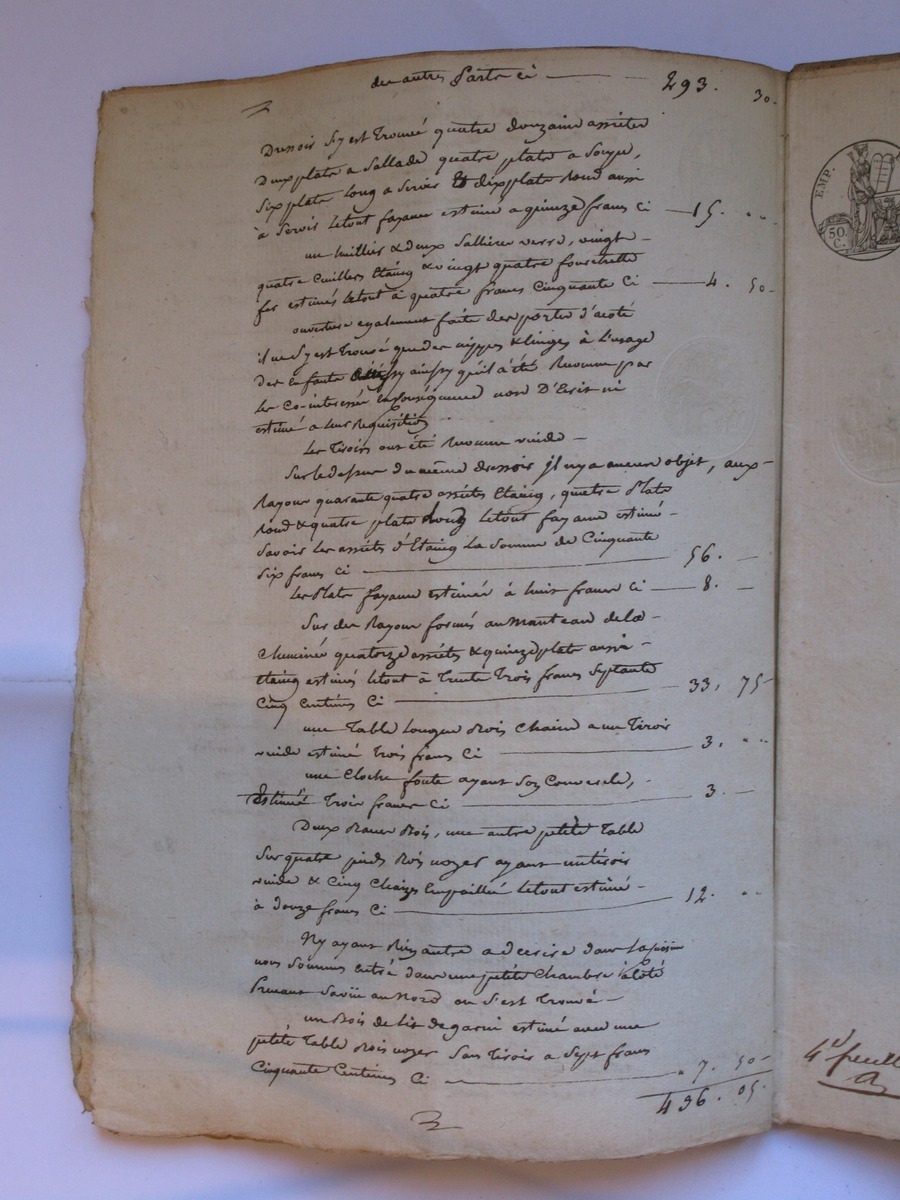 des autres Parts ci — 293. 30.
Dressoir s'y est trouvé quatre douzaine assietes
Deux plats a Sallade quatre plats a Soupe,
Six plats long a Servir Et dix plats Rond aussi
à Servir letout fayance estimé a quinze francs Ci — 15. " "
un huillier & deux Sallieres verre, vingt –
quatre Cuilleres Etaing & vingt quatre fourchettes
fer estimés letout à quatre francs Cinquante Ci — 4. 50-
ouverture egalement faite des portes d'acoté
il ne s'y est trouvé que des nippes & linges à l'usage
des Enfants ainssy qu'il à été Reconnu par
les Co-interessés En Conséquence non D'Ecrit ni
estimé a leur Requisition
Les Tiroirs ont été Reconnu vuide –
Sur le dessus du même dressoir jl ny a aucun objet, aux –
Rayons quarante quatre assiétes Etaing, quatre Plats
Rond & quatre plats long letout fayance estimé –
Savoir les assiéts d'Etaing la Somme de Cinquante
Six francs Ci — 56. —
Les Plats fayance estimés à huit francs Ci — 8. —
Sur des Rayons formés au Manteau de la –
Cheminée quatorze assiétes & quinze plats aussi –
Etaing estimés letout à Trente Trois francs Septante
Cinq Centimes Ci — 33, 75
une Table longue Bois Chaine a un Tiroir
vuide estimé trois francs Ci — 3. " "
une Cloche fonte ayant Son Couvercle, –
Estimée Trois francs Ci — 3. —
Deux Bancs Bois, une autre petite Table
Sur quatre pieds Bois noyer ayant un tiroir
vuide & Cinq Chaizes Empaillée letout estimé –
à douze francs Ci — 12. " "
N'y ayant Rien autre a décrire dans la
nous Sommes entré dans une petite Chambre à Coté
Prenant au Nord ou s'est Trouvé –
un Bois de lit degarni estimé avec une
petite Table Bois noyer Sans Tiroir a Sept francs
Cinquante Centimes Ci — 7. 50-
436. 05.
EMP.
50.
C.
4e feuill